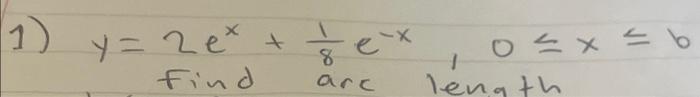 1) y = 2eˣ + 1/8 e⁻ˣ, 0 ≤ x ≤ b
find arc length